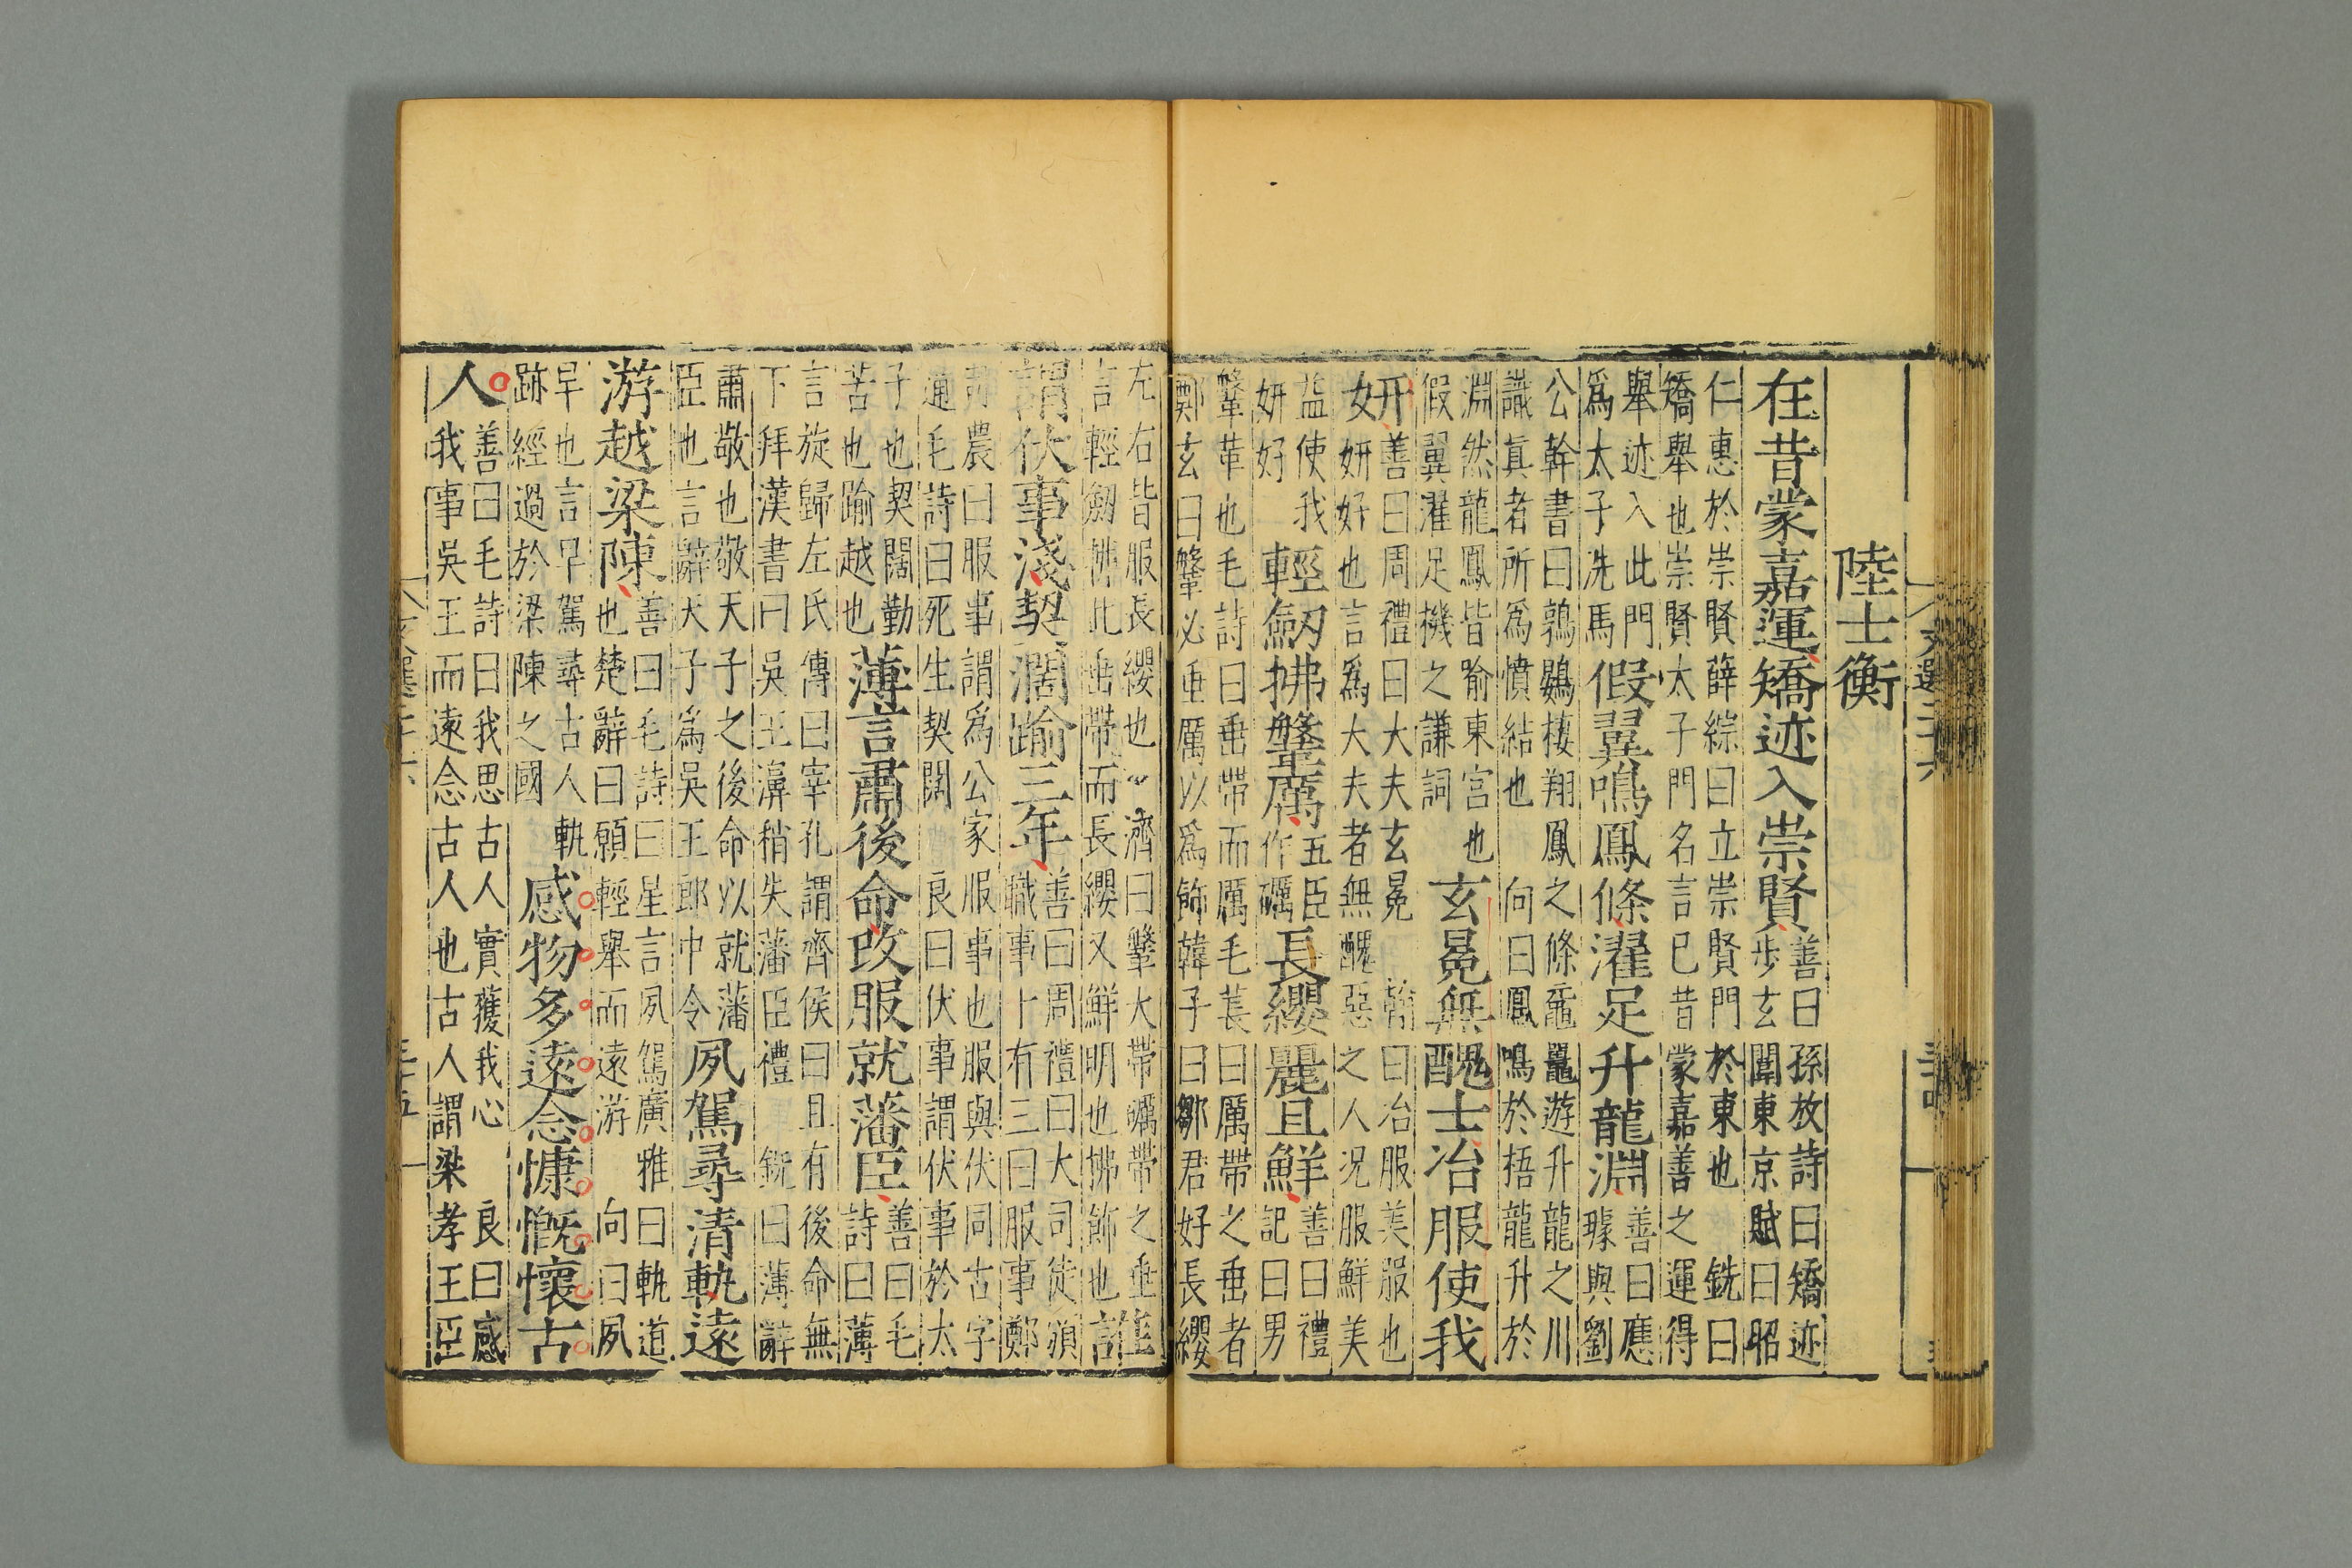 陸士衡
在昔蒙嘉運矯迹入崇賢善曰孫放詩曰矯迹
步玄闈東京賦曰昭
仁惠於崇賢薛綜曰立崇賢門於東也 銑曰
矯舉也崇賢太子門名言已昔蒙嘉善之運得
舉迹入此門
爲太子洗馬假翼鳴鳳條濯足升龍淵善曰應
璩與劉
公幹書曰鶉鷃棲翔鳳之條黿鼉游升龍之川
識真者所爲憤結也 向曰鳳鳴於梧龍升於
淵然龍鳳皆喻東宮也
假翼濯足機之謙詞 玄冕無醜士冶服使我
妍善曰周禮曰大夫玄冕 翰曰冶服美服也
妍好也言爲大夫者無醜惡之人況服鮮美
益使我
妍好 輕劒拂鞶厲五臣
作礪長纓麗且鮮善曰禮
記曰男
鞶革也毛詩曰垂帶而厲毛萇曰厲帶之垂者
鄭玄曰鞶必垂厲以爲飾韓子曰鄒君好長纓
左右皆服長纓也 濟曰鞶大帶礪帶之垂
言輕劒拂此垂帶而長纓又鮮明也拂飾也誰
謂伏事淺契闊踰三年善曰周禮曰大司徒頒
職事十有三曰服事鄭
農曰服事謂爲公家服事也服與伏同古字
通毛詩曰死生契闊 良曰伏事謂伏事於太
子也契闊勤
苦也踰越也薄言肅後命改服就藩臣善曰毛
詩曰薄
言旋歸左氏傳曰宰孔謂齊侯曰且有後命無
下拜漢書曰吳王濞稍失藩臣禮 銑曰薄辭
肅敬也敬天子之後命以就藩
臣也言辭天子爲吳王郎中令夙駕尋清軌遠
游越梁陳善曰毛詩曰星言夙駕廣雅曰軌道
也楚辭曰願輕舉而遠游 向曰夙
早也言早駕尋古人軌
跡經過於梁陳之國 感物多遠念慷慨懷古
人善曰毛詩曰我思古人實獲我心 良曰感
我事吳王而遠念古人也古人謂梁孝王臣